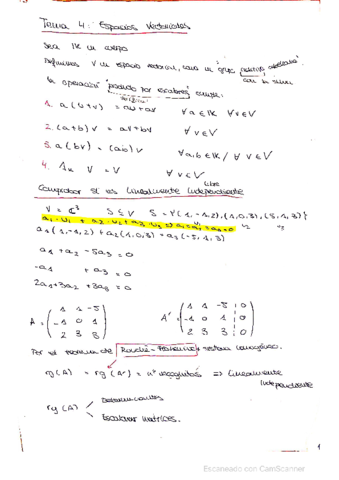 Tema 4: Espacios Vectoriales
Sea K un cuerpo
Definimos V un espacio vectorial, como un grupo
la operación "producto por escalares" cumpla:
1. a(u+v) = au+av ∀a∈K ∀v∈V
2. (a+b)v = av+bv ∀v∈V
3. a(bv) = (ab)v ∀a,b∈K / ∀v∈V
4. 1ₖ v = v ∀v∈V
Libre
Comprobar si es Linealmente Independiente
V = ℂ³ S ⊆ V S = {(1,-1,2),(1,0,3),(-5,1,3)}
a₁·v₁ + a₂·v₂ + a₃·v₃ = a₁=a₂=a₃=0 v₂ v₃
a₁(1,-1,2) + a₂(1,0,3) + a₃(-5,1,3)
a₁ + a₂ - 5a₃ = 0
-a₁ + a₃ = 0
2a₁+3a₂ +3a₃ = 0
A = (1 1 -5 A' = (1 1 -5 0
-1 0 1 -1 0 1 0
2 3 3) 2 3 3 0)
Por el teorema de Rouché-Frobenius sistema homogéneo.
rg(A) = rg(A') = nº incógnitas ⇒ Linealmente
Independiente
rg(A) Determinantes
Escalonar matrices.
1
Escaneado con CamScanner